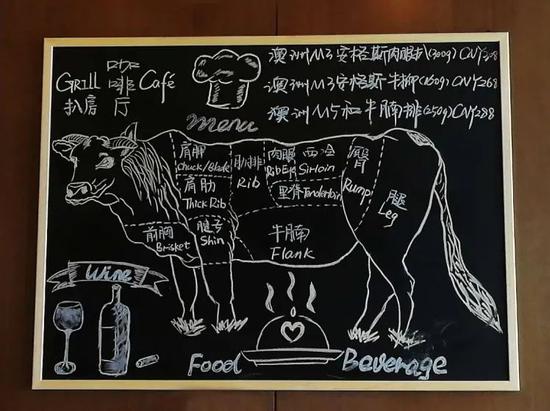 Grill 咖啡厅 Café
扒房
澳洲M3安格斯肉眼扒(300g) CNY
澳洲M3安格斯牛柳(160g) CNY268
澳洲M5和牛腩排(250g) CNY288
menu
肩胛
Chuck/Blade
肋排
Rib
肉眼
RibEye
西冷
Sirloin
臀
Rump
腿
Leg
肩肋
Thick Rib
里脊 Tenderloin
前胸
Brisket
Shin
牛腩
Flank
Wine
Food
Beverage